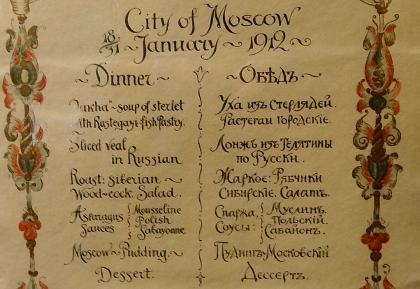 City of Moscow
18/31 ~ January ~ 1912 ~
~ Dinner ~
"Oukha"-soup of sterlet
with Rastegayi-fish Pastry.
Sliced veal
in Russian
Roast: Siberian ~
Wood-cock. Salad.
Asparagus
Sauces
Mousseline
Polish
Sabayonne
Moscow ~ Pudding ~
Dessert.
~ ОБѢДЪ ~
Уха изъ Стерлядей.
Растегаи городскіе.
Лонжъ изъ Телятины
по Русски.
Жаркое: Рябчики
Сибирскіе. Салатъ.
Спаржа.
Соусы:
Муслинъ.
Польскій
Сабаіонъ.
Пудингъ Московскій
Дессертъ.